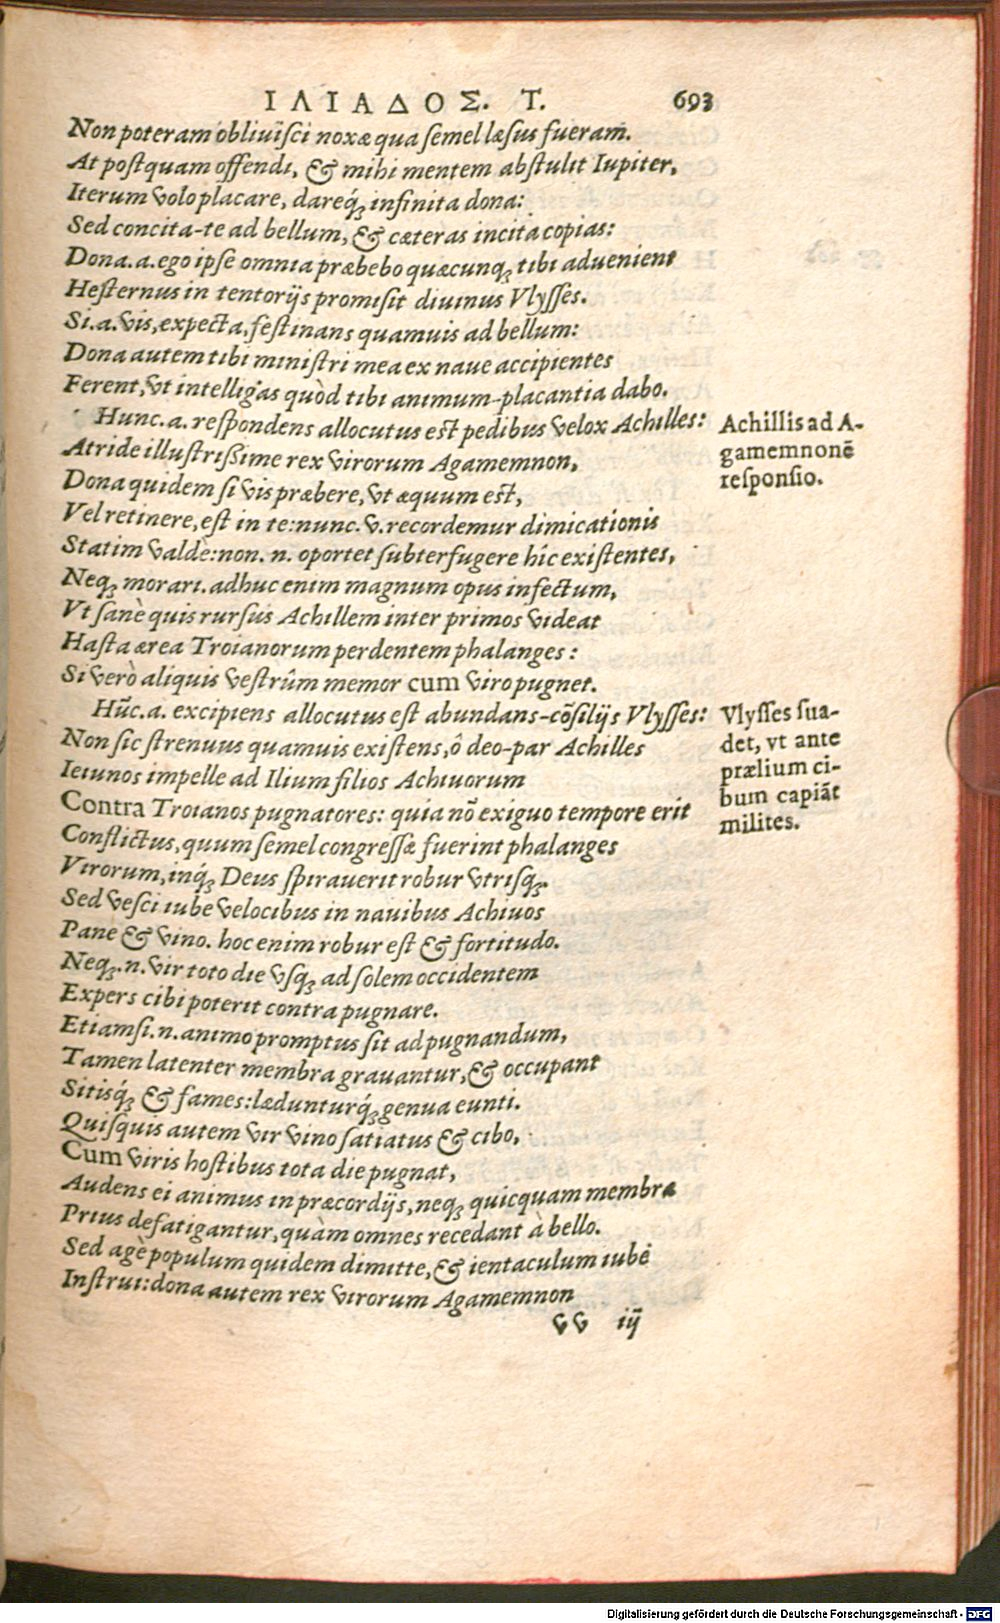 ΙΛΙΑΔΟΣ. Τ. 693
Non poteram obliuisci noxæ qua semel læsus fueram.
At postquam offendi, & mihi mentem abstulit Iupiter,
Iterum volo placare, dareq́; infinita dona:
Sed concita-te ad bellum, & cæteras incita copias:
Dona .a. ego ipse omnia præbebo quæcunq; tibi aduenient
Hesternus in tentorijs promisit diuinus Vlysses.
Si .a. vis, expecta, festinans quamuis ad bellum:
Dona autem tibi ministri mea ex naue accipientes
Ferent, vt intelligas quòd tibi animum-placantia dabo.
Hunc .a. respondens allocutus est pedibus velox Achilles:
Atride illustrißime rex virorum Agamemnon,
Dona quidem si vis præbere, vt æquum est,
Vel retinere, est in te: nunc .v. recordemur dimicationis
Statim valdè: non .n. oportet subterfugere hîc existentes,
Neq; morari. adhuc enim magnum opus infectum,
Vt sanè quis rursus Achillem inter primos videat
Hasta ærea Troianorum perdentem phalanges:
Si verò aliquis vestrûm memor cum viro pugnet.
Hūc .a. excipiens allocutus est abundans-cōsilijs Vlysses:
Non sic strenuus quamuis existens, ô deo-par Achilles
Ieiunos impelle ad Ilium filios Achiuorum
Contra Troianos pugnatores: quia nō exiguo tempore erit
Conflictus, quum semel congressæ fuerint phalanges
Virorum, inq́; Deus spirauerit robur vtrisq;.
Sed vesci iube velocibus in nauibus Achiuos
Pane & vino. hoc enim robur est & fortitudo.
Neq; .n. vir toto die vsq; ad solem occidentem
Expers cibi poterit contra pugnare.
Etiamsi .n. animo promptus sit ad pugnandum,
Tamen latenter membra grauantur, & occupant
Sitisq́; & fames: lædunturq́; genua eunti.
Quisquis autem vir vino satiatus & cibo,
Cum viris hostibus tota die pugnat,
Audens ei animus in præcordijs, neq; quicquam membra
Prius defatigantur, quàm omnes recedant à bello.
Sed agè populum quidem dimitte, & ientaculum iube
Instrui: dona autem rex virorum Agamemnon
vv iij
Achillis ad A-
gamemnonē
responsio.
Vlysses sua-
det, vt ante
prælium ci-
bum capiāt
milites.
Digitalisierung gefördert durch die Deutsche Forschungsgemeinschaft - DFG